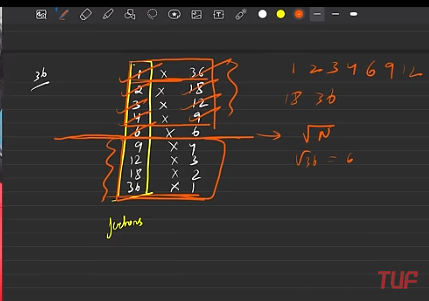 36
1 x 36
2 x 18
3 x 12
4 x 9
6 x 6
9 x 4
12 x 3
18 x 2
36 x 1
factors
1 2 3 4 6 9 12
18 36
√N
√36 = 6
TUF